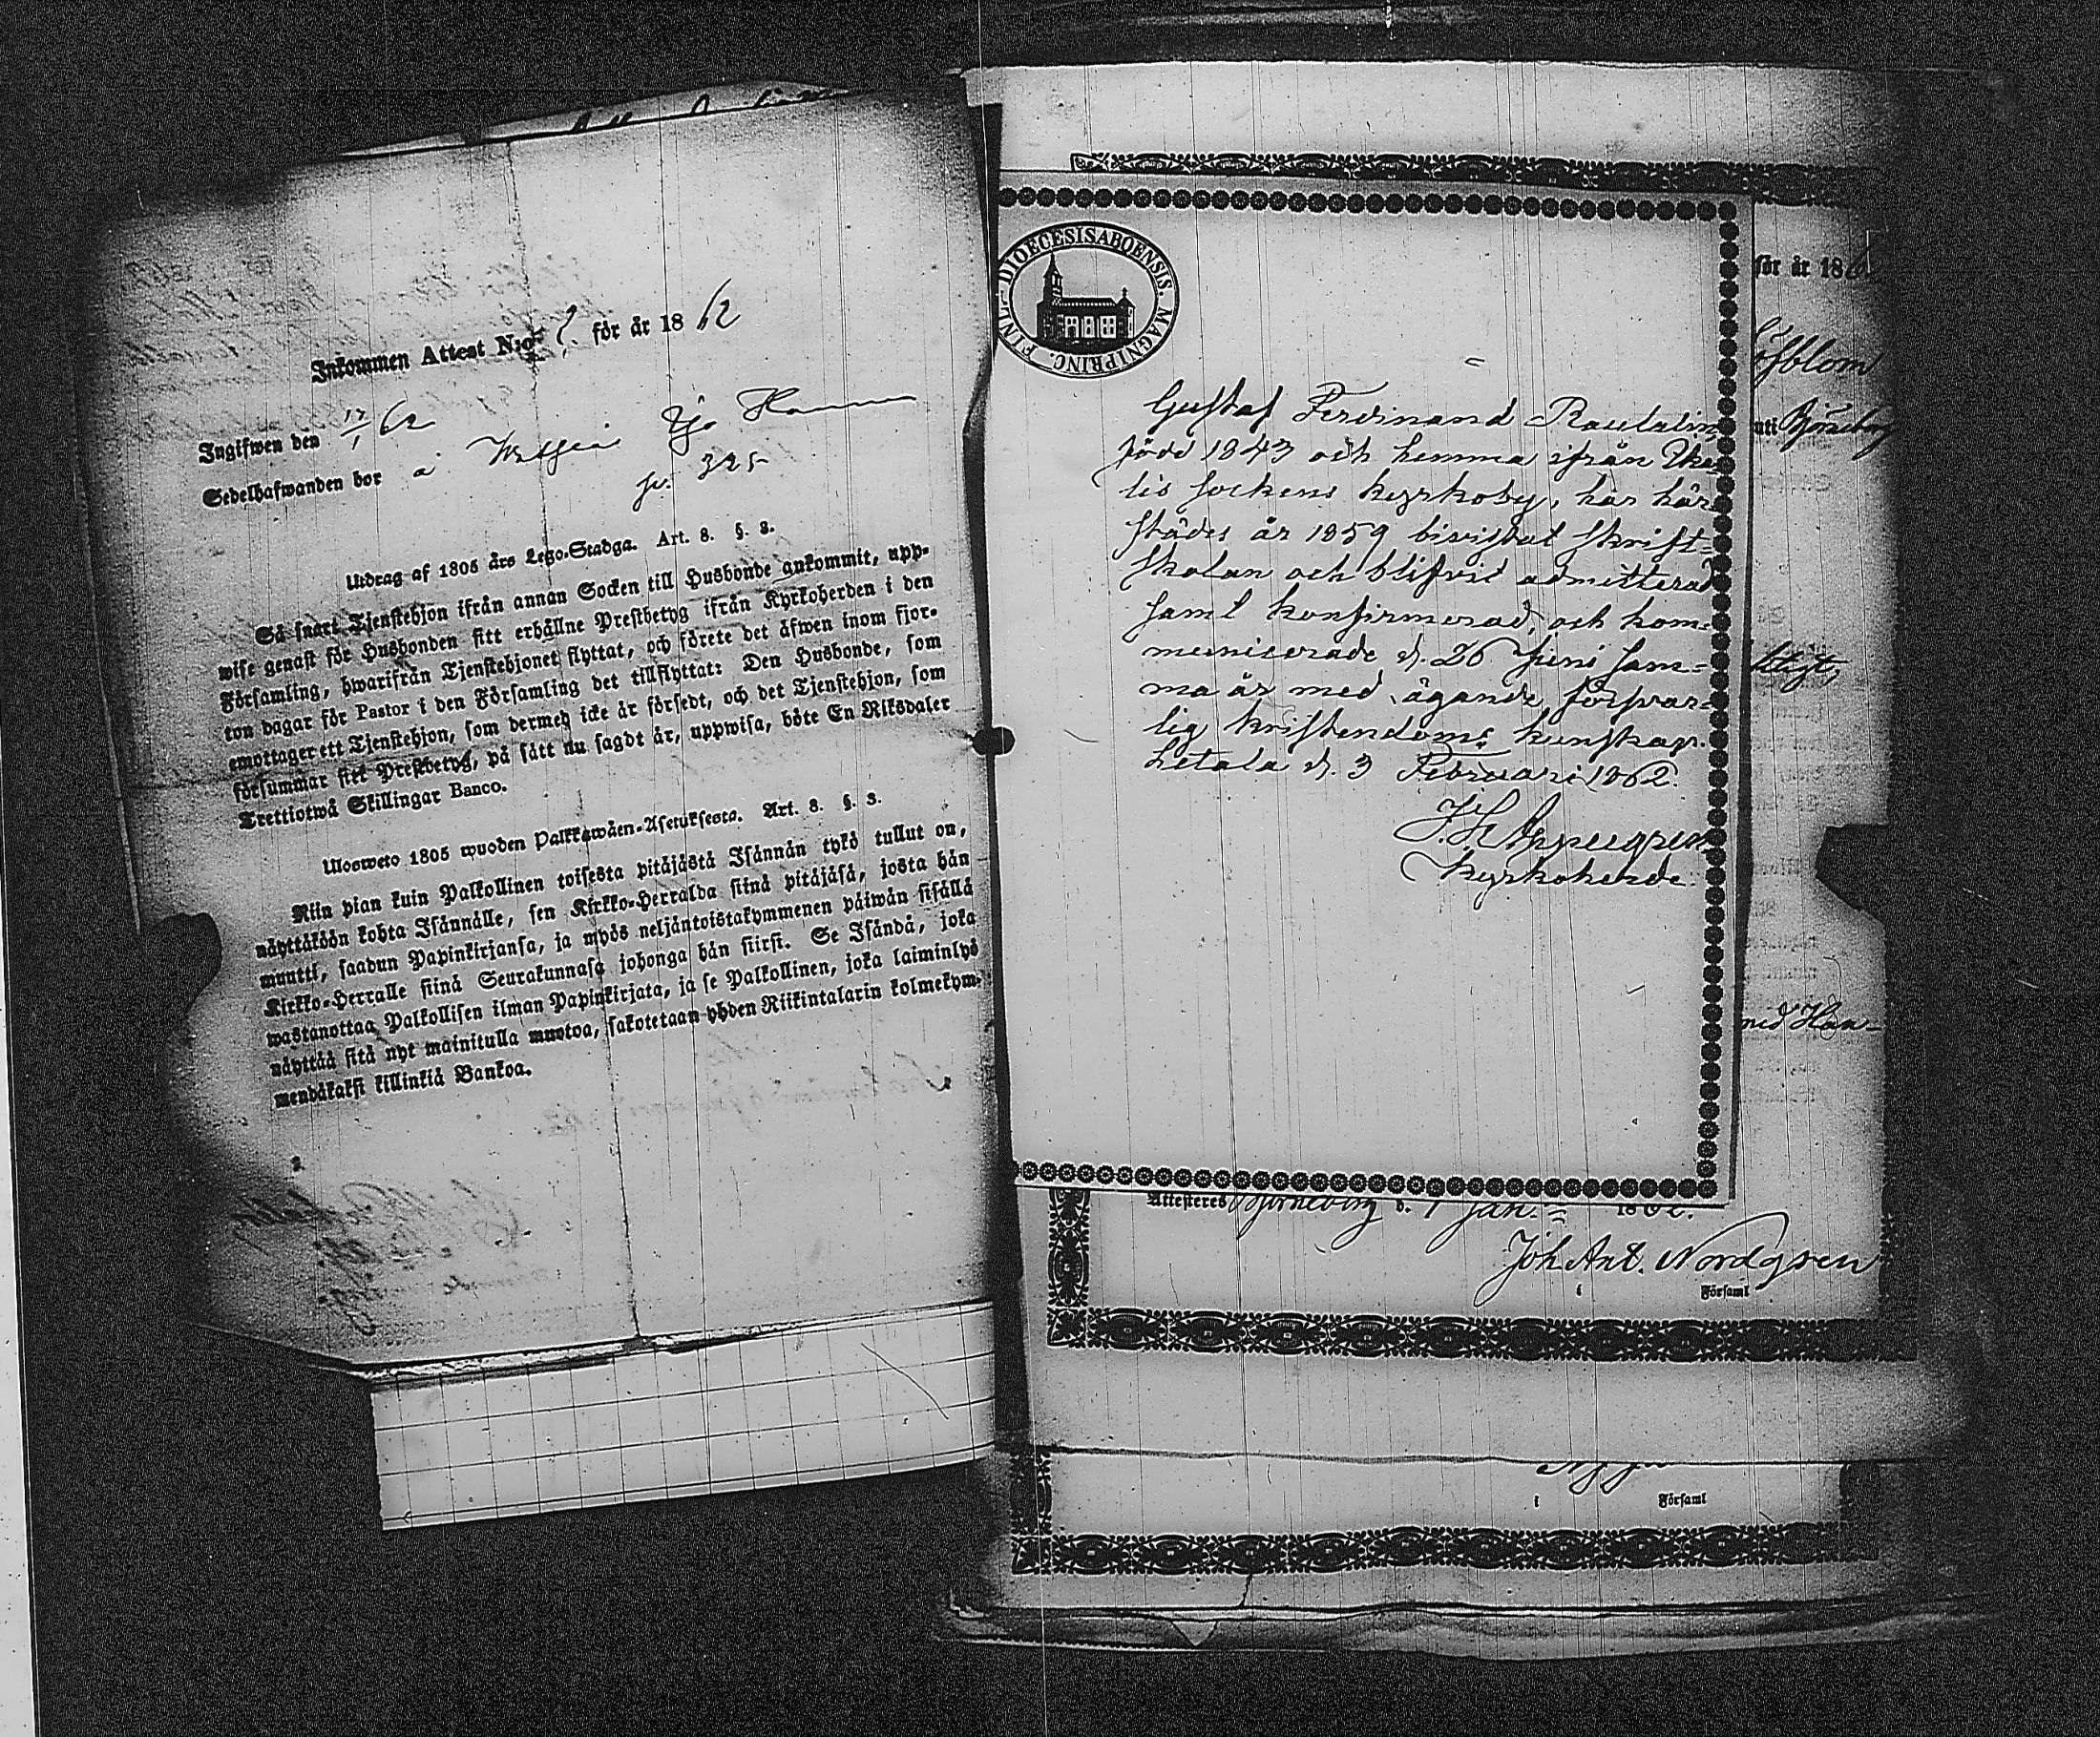 Inkommen Attest N:o 2. för år 1862
Ingifwen den 17/1 62
Sedelhafwanden bor å
p. 325
Utdrag af 1805 års Lego-Stadga. Art. 8. §. 3.
Så snart Tjenstehjon ifrån annan Socken till Husbonde ankommit, upp-
wise genast för Husbonden sitt erhållne Prestbetyg ifrån Kyrkoherden i den
Församling, hwarifrån Tjenstehjonet flyttat, och förete det äfwen inom fjor-
ton dagar för Pastor i den Församling det tillflyttat: Den Husbonde, som
emottager ett Tjenstehjon, som dermed icke är försedt, och det Tjenstehjon, som
försummar sitt Prestbetyg, på sätt nu sagdt är, uppwisa, böte En Riksdaler
Trettiotwå Skillingar Banco.
Ulosweto 1805 wuoden Palkkawäen-Asetuksesta. Art. 8. §. 3.
Niin pian kuin Palkollinen toisesta pitäjästä Isännän tykö tullut on,
näyttäköön kohta Isännälle, sen Kirkko-Herralda siinä pitäjäsä, josta hän
muutti, saadun Papinkirjansa, ja myös neljäntoistakymmenen päiwän sisällä
Kirkko-Herralle siinä Seurakunnasa johonga hän siirsi. Se Isändä, joka
wastanottaa Palkollisen ilman Papinkirjata, ja se Palkollinen, joka laiminlyö
näyttää sitä nyt mainitulla muotoa, sakotetaan yhden Riikintalarin kolmekym-
mendäkaksi killinkiä Bankoa.
DIOECESIS ABOENSIS. MAGNI PRINC. FINL.
Gustaf Ferdinand Rautalin
född 1843 och hemma ifrån Uke-
lis sockens kyrkoby, har här-
städes år 1859 bivistat skrift-
skolan och blifvid admitterad
samt konfirmerad, och kom-
municerade d. 26 Juni sam-
ma år med ägande försvar-
lig kristendoms kunskap.
Letala d. 3 Februari 1862.
Kyrkoherde.
för år 186
öfblom
Björneborg
med Han-
Attesteres Björneborg d. 7 Jan. 1862.
Joh. Ant. Nordgren
i Församl
i Församl